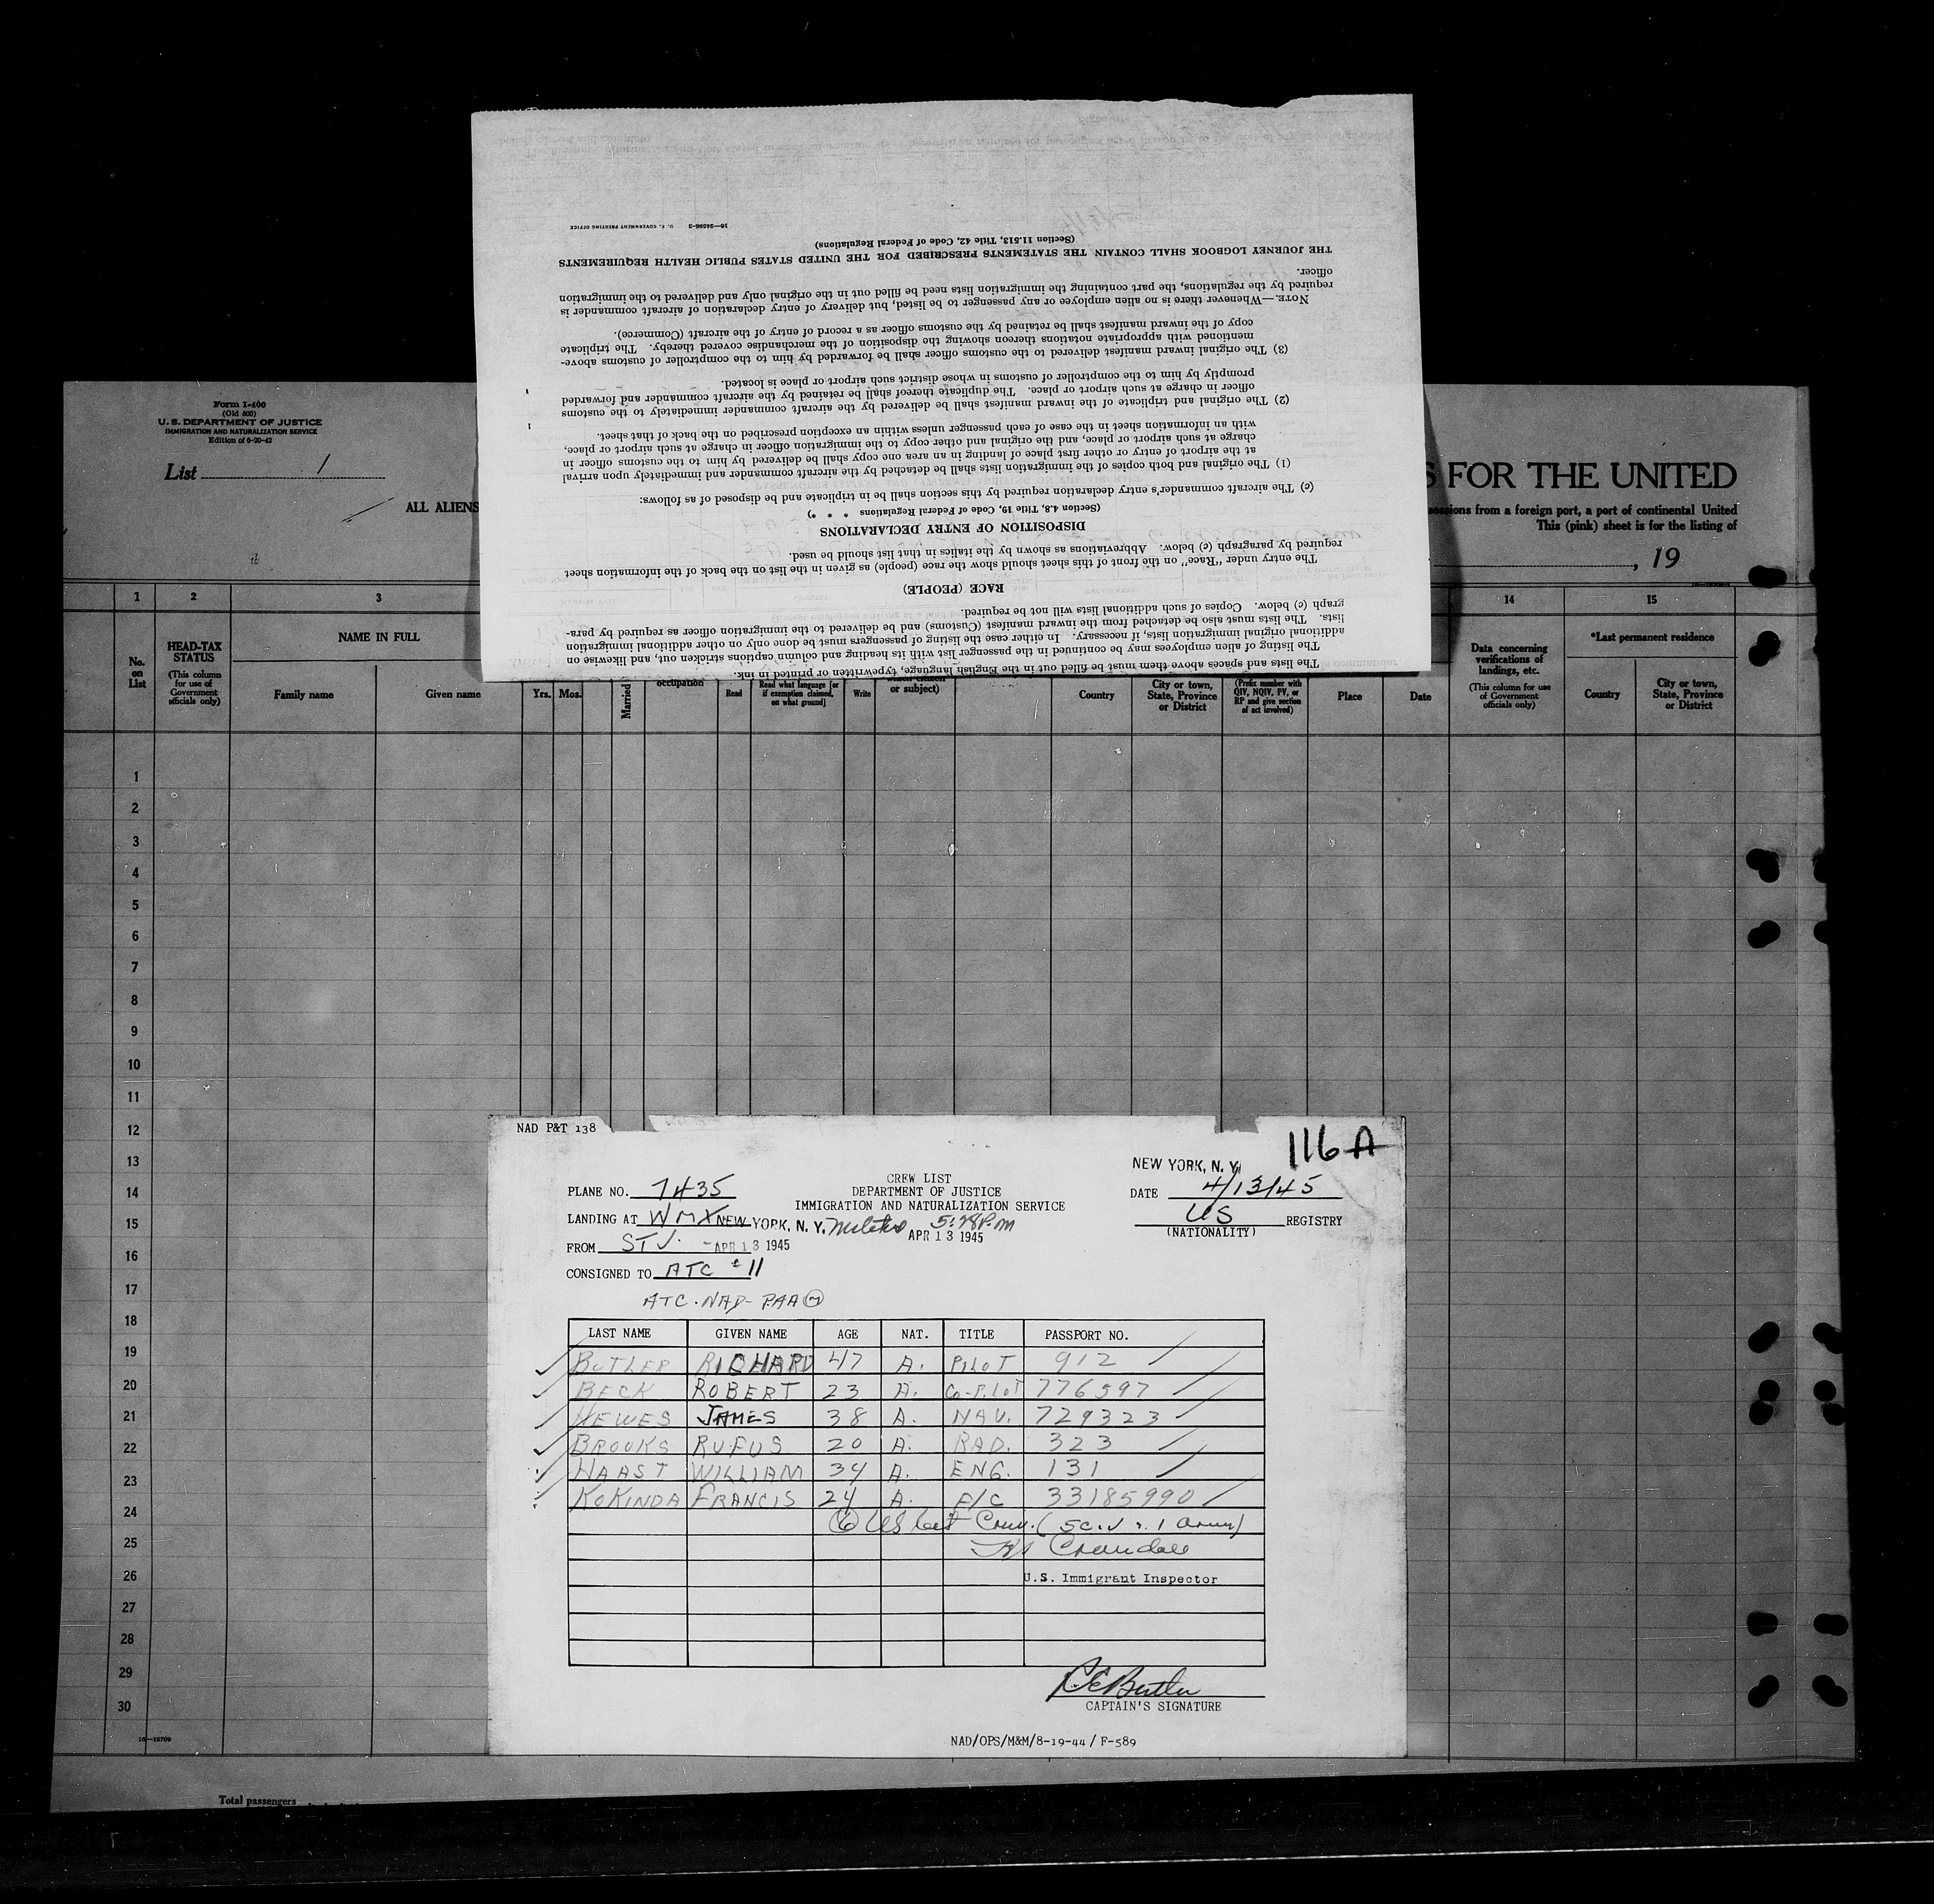 Form I-400
(Old 500)
U. S. DEPARTMENT OF JUSTICE
IMMIGRATION AND NATURALIZATION SERVICE
Edition of 6-20-42
List 1
ALL ALIENS
S FOR THE UNITED
sessions from a foreign port, a port of continental United
This (pink) sheet is for the listing of
, 19
The lists and spaces above them must be filled out in the English language, typewritten or printed in ink.
The listing of alien employees may be continued in the passenger list with its heading and column captions stricken out, and likewise on
additional original immigration lists, if necessary. In either case the listing of passengers must be done only on other additional immigration
lists. The lists must also be detached from the inward manifest (Customs) and be delivered to the immigration officer as required by para-
graph (c) below. Copies of such additional lists will not be required.
RACE (PEOPLE)
The entry under "Race" on the front of this sheet should show the race (people) as given in the list on the back of the information sheet
required by paragraph (c) below. Abbreviations as shown by the italics in that list should be used.
DISPOSITION OF ENTRY DECLARATIONS
(Section 4.8, Title 19, Code of Federal Regulations * * *)
(c) The aircraft commander's entry declaration required by this section shall be in triplicate and be disposed of as follows:
(1) The original and both copies of the immigration lists shall be detached by the aircraft commander and immediately upon arrival
at the airport of entry or other first place of landing in an area one copy shall be delivered by him to the customs officer in
charge at such airport or place, and the original and other copy to the immigration officer in charge at such airport or place,
with an information sheet in the case of each passenger unless within an exception prescribed on the back of that sheet.
(2) The original and triplicate of the inward manifest shall be delivered by the aircraft commander immediately to the customs
officer in charge at such airport or place. The duplicate thereof shall be retained by the aircraft commander and forwarded
promptly by him to the comptroller of customs in whose district such airport or place is located.
(3) The original inward manifest delivered to the customs officer shall be forwarded by him to the comptroller of customs above-
mentioned with appropriate notations thereon showing the disposition of the merchandise covered thereby. The triplicate
copy of the inward manifest shall be retained by the customs officer as a record of entry of the aircraft (Commerce).
NOTE.—Whenever there is no alien employee or any passenger to be listed, but delivery of entry declaration of aircraft commander is
required by the regulations, the part containing the immigration lists need be filled out in the original only and delivered to the immigration
officer.
THE JOURNEY LOGBOOK SHALL CONTAIN THE STATEMENTS PRESCRIBED FOR THE UNITED STATES PUBLIC HEALTH REQUIREMENTS
(Section 11.513, Title 42, Code of Federal Regulations)
16—24598-2 U. S. GOVERNMENT PRINTING OFFICE
1 2 3 14 15
No. on List
HEAD-TAX STATUS
(This column for use of Government officials only)
NAME IN FULL
Family name Given name
Yrs. Mos.
Married
occupation
Read
Read what language [or if exemption claimed, on what ground]
Write
or subject)
Country
City or town, State, Province or District
(Prefix number with QIV, NQIV, PV, or RP and give section of act involved)
Place Date
Data concerning verifications of landings, etc.
(This column for use of Government officials only)
*Last permanent residence
Country
City or town, State, Province or District
1
2
3
4
5
6
7
8
9
10
11
12
13
14
15
16
17
18
19
20
21
22
23
24
25
26
27
28
29
30
16—18709
Total passengers
NAD P&T 138
116A
CREW LIST
DEPARTMENT OF JUSTICE
IMMIGRATION AND NATURALIZATION SERVICE
NEW YORK, N. Y.
PLANE NO. 7435
DATE 4/13/45
LANDING AT WMX NEW YORK, N. Y. 5:28 P.m
APR 13 1945
US REGISTRY
(NATIONALITY)
FROM STJ. APR 13 1945
CONSIGNED TO ATC #11
ATC-NAD-PAA
LAST NAME GIVEN NAME AGE NAT. TITLE PASSPORT NO.
BUTLER RICHARD 47 A. PILOT 912
BECK ROBERT 23 A. CO-PILOT 776597
HEWES JAMES 38 A. NAV. 729323
BROOKS RUFUS 20 A. RAD. 323
HAAST WILLIAM 34 A. ENG. 131
KOKINDA FRANCIS 24 A. F/C 33185990
6 US Crew (5 Civ. 1 Army)
Crandall
U.S. Immigrant Inspector
R E Butler
CAPTAIN'S SIGNATURE
NAD/OPS/M&M/8-19-44/ F-589